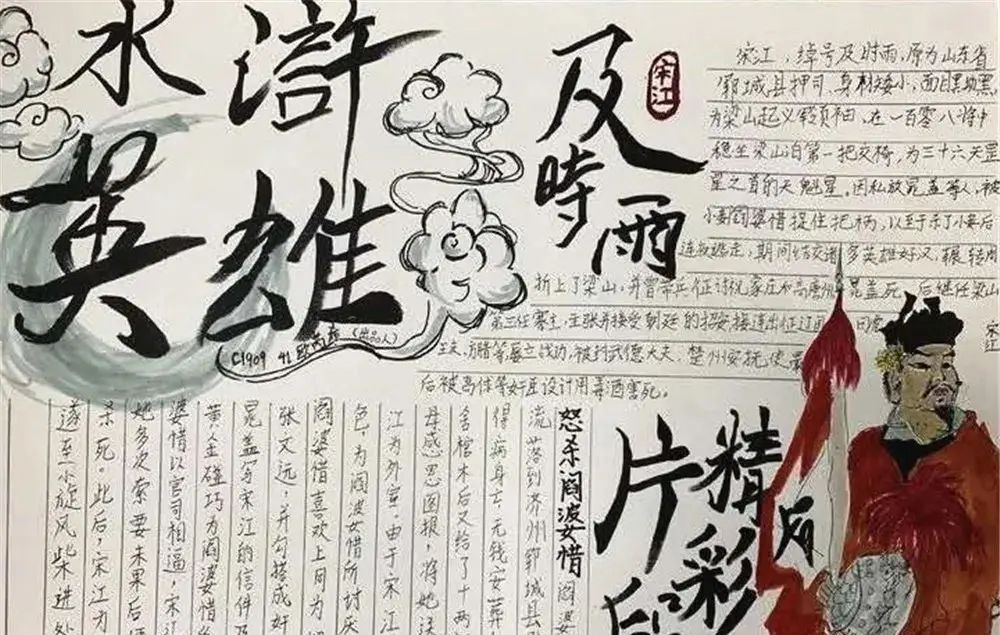 水滸
英雄
C1909 41 欧芮彤 (出品人)
及時雨
宋江
宋江，绰号及时雨，原为山东省
郓城县押司，身材矮小，面目黑黝黑
为梁山起义军领袖，在一百零八将中
稳坐梁山泊第一把交椅，为三十六天罡
星之首的天魁星。因私放晁盖等人，被
小妾阎婆惜捉住把柄，以至于杀了小妾后
连夜逃走，期间结交诸多英雄好汉，辗转周
折上了梁山，并曾带兵征讨祝家庄和高唐州 晁盖死，后继任梁山
第三任寨主，主张并接受朝廷的招安接连出征辽
王庆、方腊等屡立战功，被封武德大夫、楚州安抚使兼
后被高俅等奸臣设计用毒酒害死。
宋江
精彩
片
怒杀阎婆惜 阎婆
流落到济州郓城县
得病身亡，无钱安葬
含棺木后又给了十两
母感恩图报，将她送
江为外室，由于宋江
色，为阎婆惜所讨厌
阎婆惜喜欢上同为
张文远，并勾搭成奸
晁盖写宋江的信件及
黄金碰巧为阎婆惜
婆惜以官司相逼，宋江
她多次索要未果后
杀死。此后，宋江为
遂至小旋风柴进处